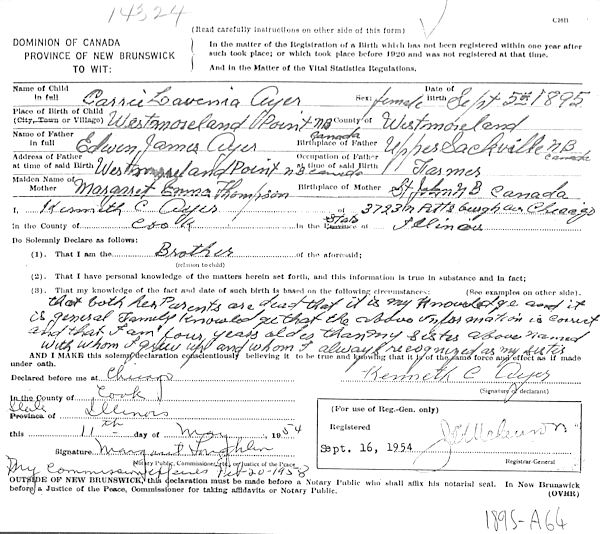 14324
C26B
(Read carefully instructions on other side of this form)
DOMINION OF CANADA
PROVINCE OF NEW BRUNSWICK
TO WIT:
In the matter of the Registration of a Birth which has not been registered within one year after
such took place; or which took place before 1920 and was not registered at that time.
And in the Matter of the Vital Statistics Regulations.
Name of Child in full Carrie Lavenia Ayer Sex: female Date of Birth Sept 5th 1895
Place of Birth of Child (City, Town or Village) Westmoreland Point NB Canada County of Westmoreland
Name of Father in full Edwin James Ayer Birthplace of Father Upper Sackville NB Canada
Address of Father at time of said Birth Westmoreland Point NB Canada Occupation of Father at time of said Birth Farmer
Maiden Name of Mother Margaret Emma Thompson Birthplace of Mother St John NB Canada
I, Kenneth C Ayer of 3723 N Pittsburgh av Chicago
in the County of Cook in the State of Illinois
Do Solemnly Declare as follows:
(1). That I am the Brother of the aforesaid;
(relation to child)
(2). That I have personal knowledge of the matters herein set forth, and this information is true in substance and in fact;
(3). That my knowledge of the fact and date of such birth is based on the following circumstances: (See examples on other side).
that both her Parents are dead that it is my Knowledge and it
is general Family Knowledge that the above information is correct
and that I am four years older than my sister above named
with whom I grew up and whom I always recognized as my sister
AND I MAKE this solemn declaration conscientiously believing it to be true and knowing that it is of the same force and effect as if made
under oath.
Kenneth C Ayer
(Signature of declarant)
Declared before me at Chicago
In the County of Cook
State Province of Illinois
this 11th day of May, 1954
Signature Margaret
Notary Public, Commissioner, etc., or Justice of the Peace.
My Commission Expires Feb-20-1958
(For use of Reg.-Gen. only)
Registered
Sept. 16, 1954
Registrar-General
OUTSIDE OF NEW BRUNSWICK, this declaration must be made before a Notary Public who shall affix his notarial seal. In New Brunswick
before a Justice of the Peace, Commissioner for taking affidavits or Notary Public.
(OVER)
1895-A64